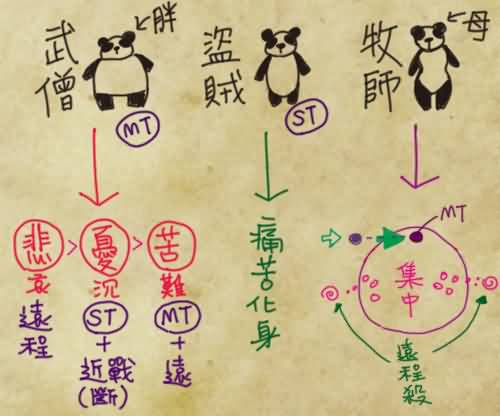 武僧
胖
MT
盜賊
ST
牧師
母
悲 > 憂 > 苦
哀 沉 難
遠程
ST
+
近戰
(斷)
MT
+
遠
痛苦化身
MT
集中
遠程殺